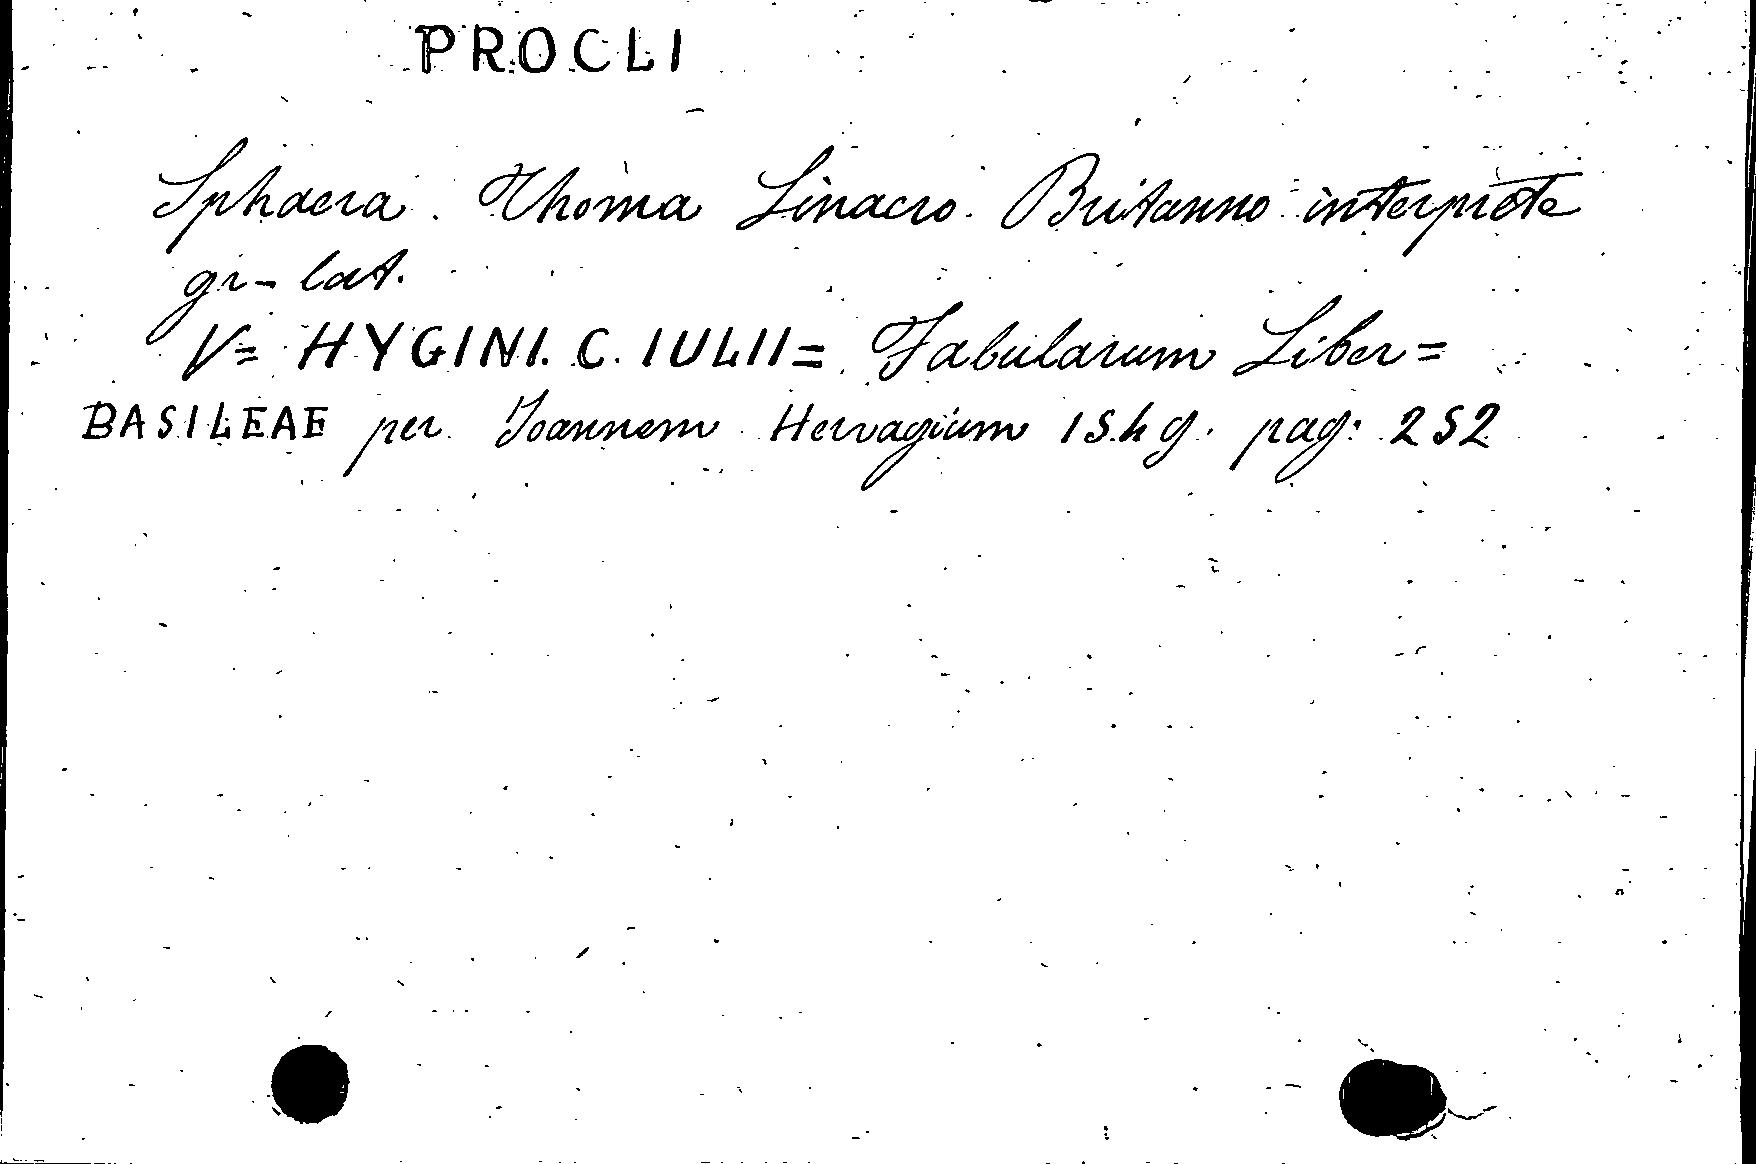 PROCLI
Sphaera. Thoma Linacro Britanno interprete
gr-lat.
V= HYGINI. C. IULII= Fabularum Liber=
BASILEAE per Joannem Hervagium 1549. pag: 252